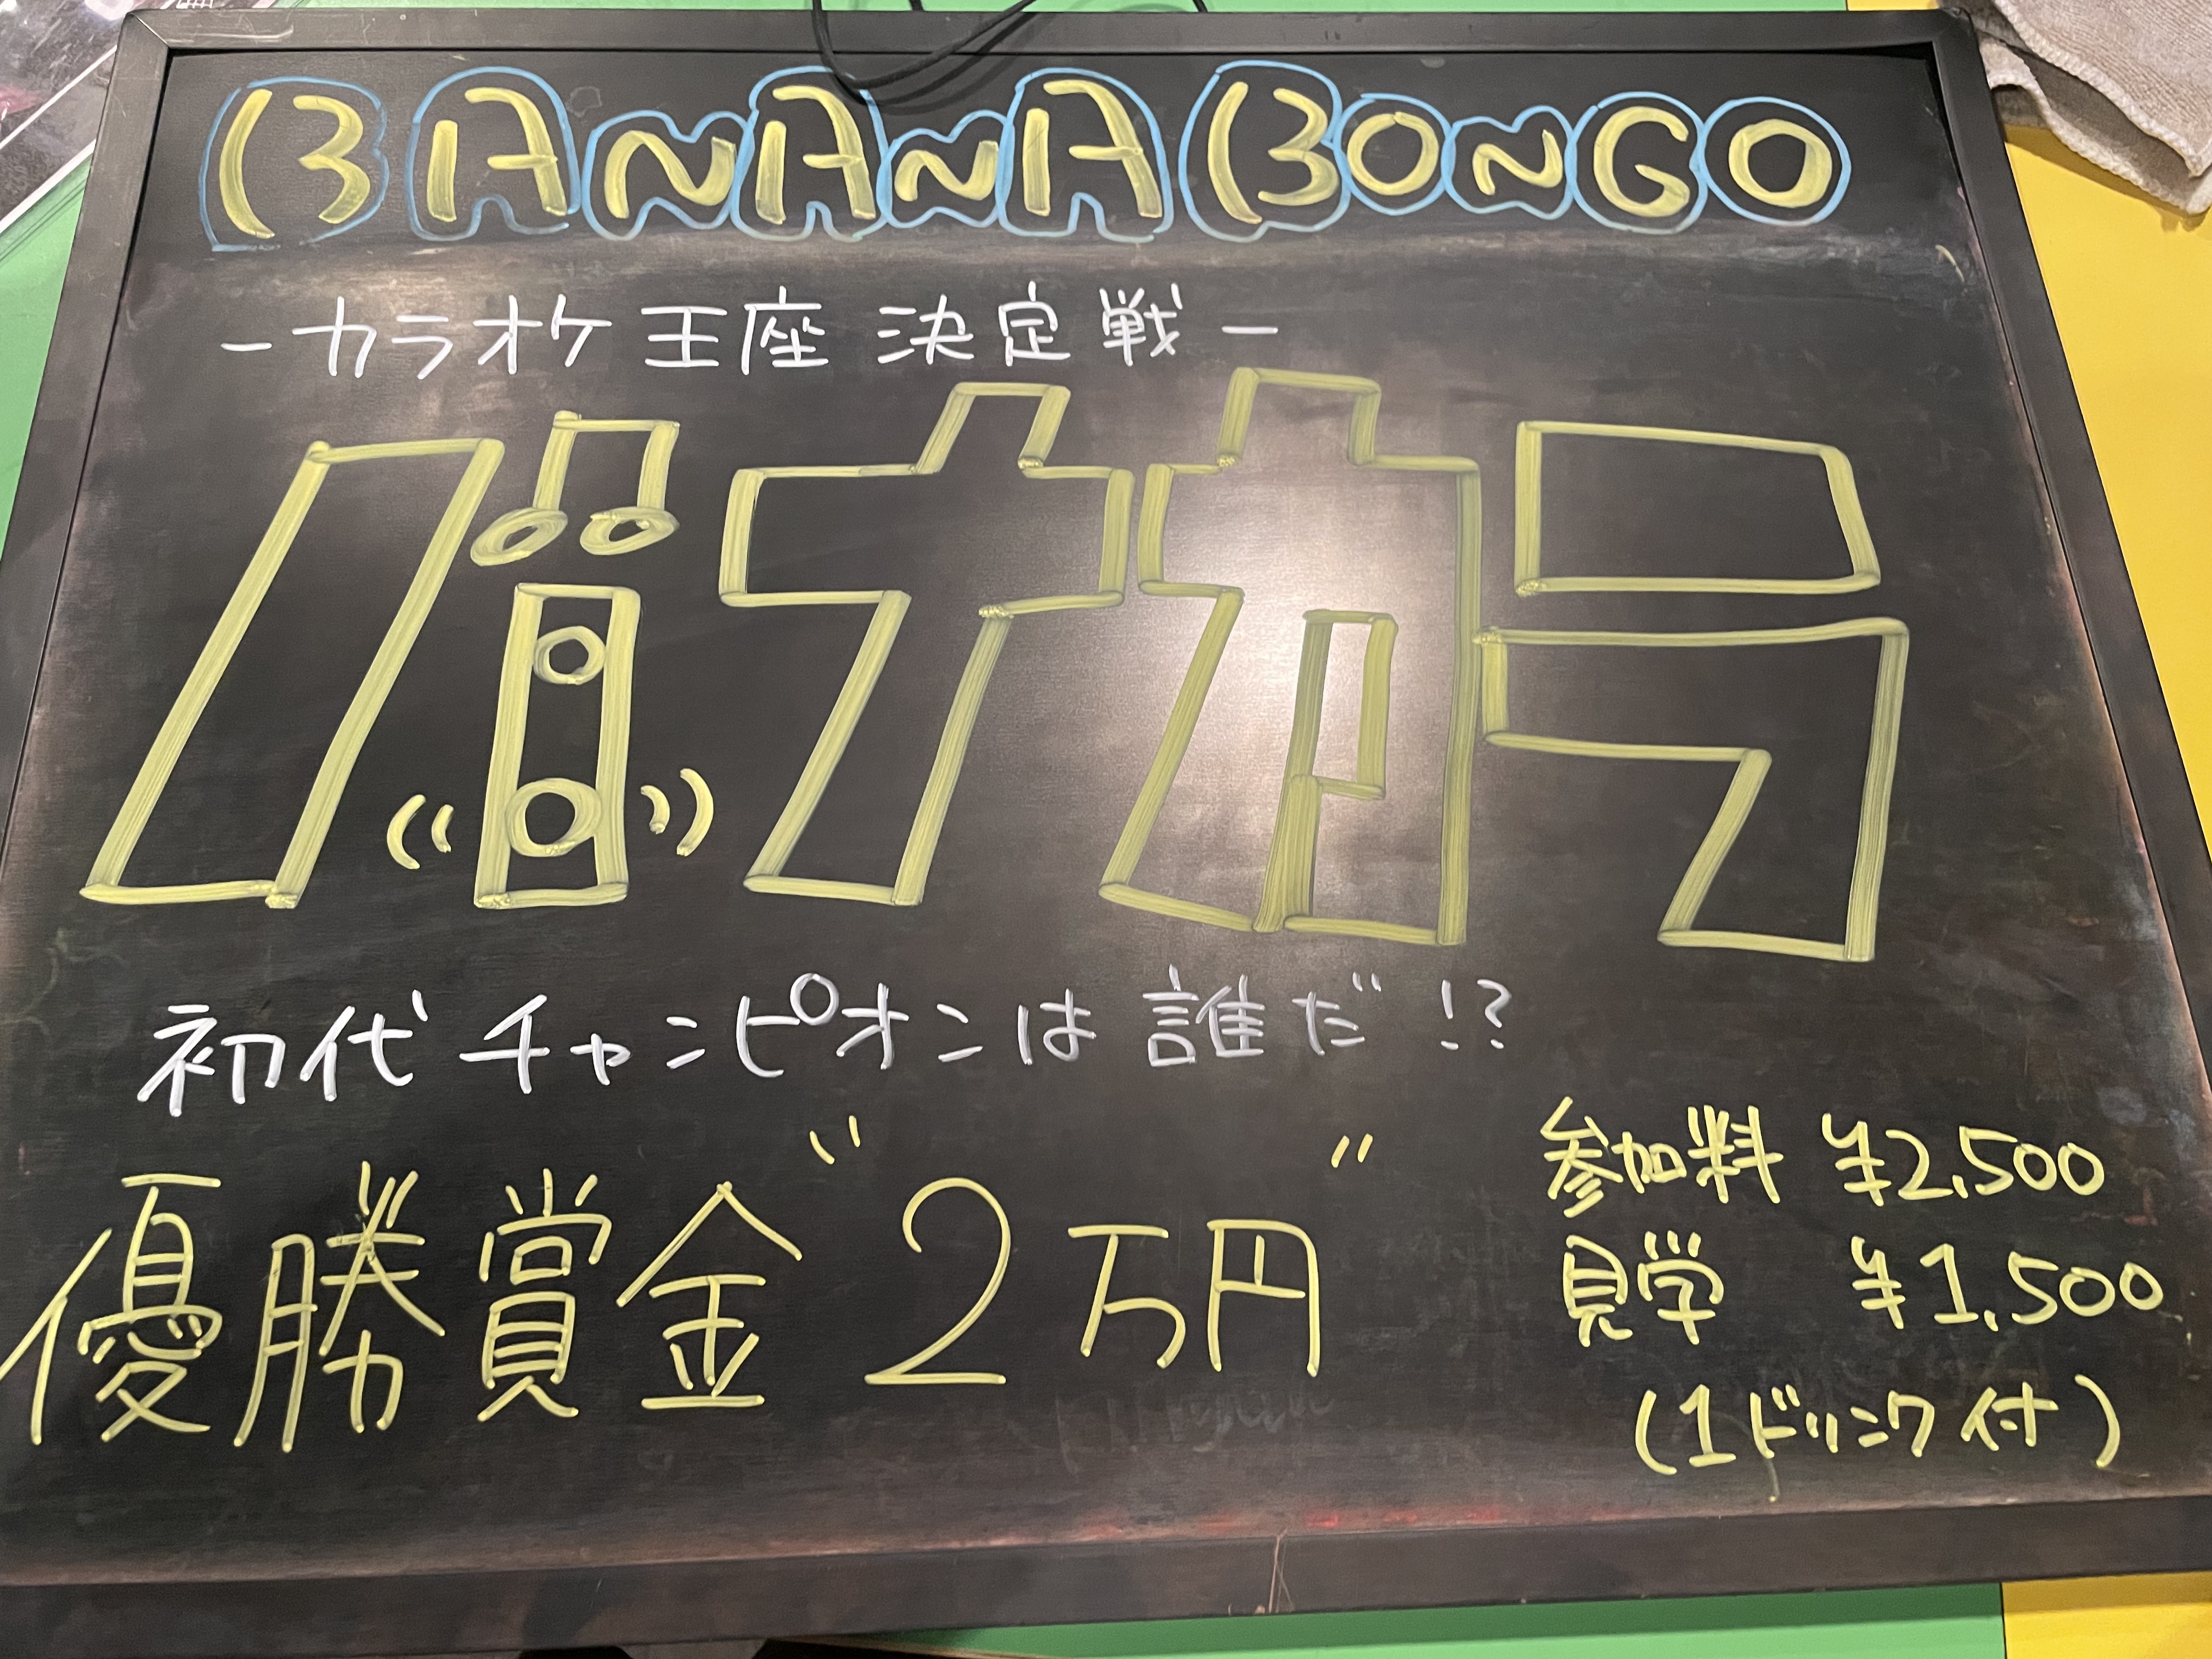 BANANA BONGO
-カラオケ王座決定戦-
バナカラ
初代チャンピオンは誰だ!?
優勝賞金"2万円"
参加料 ¥2,500
見学 ¥1,500
(1ドリンク付)